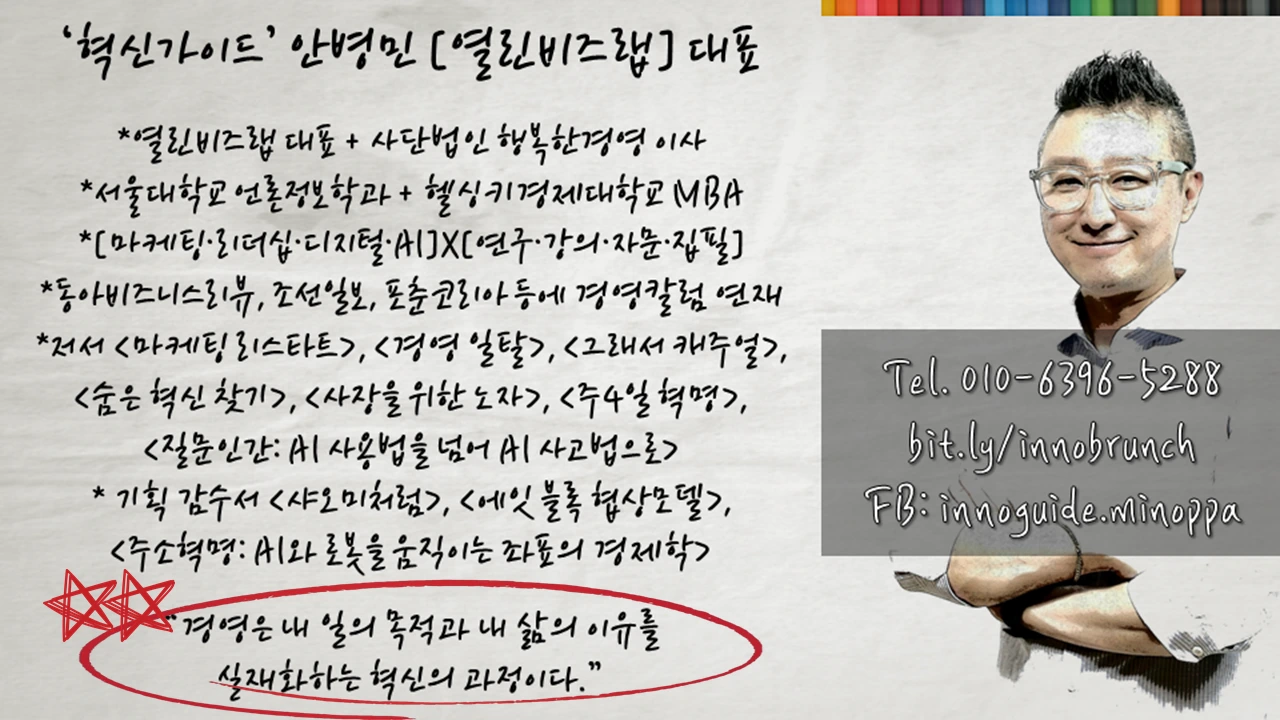 ‘혁신가이드’ 안병민 [열린비즈랩] 대표
*열린비즈랩 대표 + 사단법인 행복한경영 이사
*서울대학교 언론정보학과 + 헬싱키경제대학교 MBA
*[마케팅·리더십·디지털·AI]X[연구·강의·자문·집필]
*동아비즈니스리뷰, 조선일보, 포춘코리아 등에 경영칼럼 연재
*저서 <마케팅 리스타트>, <경영 일탈>, <그래서 캐주얼>,
<숨은 혁신 찾기>, <사장을 위한 노자>, <주4일 혁명>,
<질문인간: AI 사용법을 넘어 AI 사고법으로>
* 기획 감수서 <샤오미처럼>, <에잇 블록 협상모델>,
<주소혁명: AI와 로봇을 움직이는 좌표의 경제학>
“경영은 내 일의 목적과 내 삶의 이유를
실재화하는 혁신의 과정이다.”
Tel. 010-6396-5288
bit.ly/innobrunch
FB: innoguide.minoppa